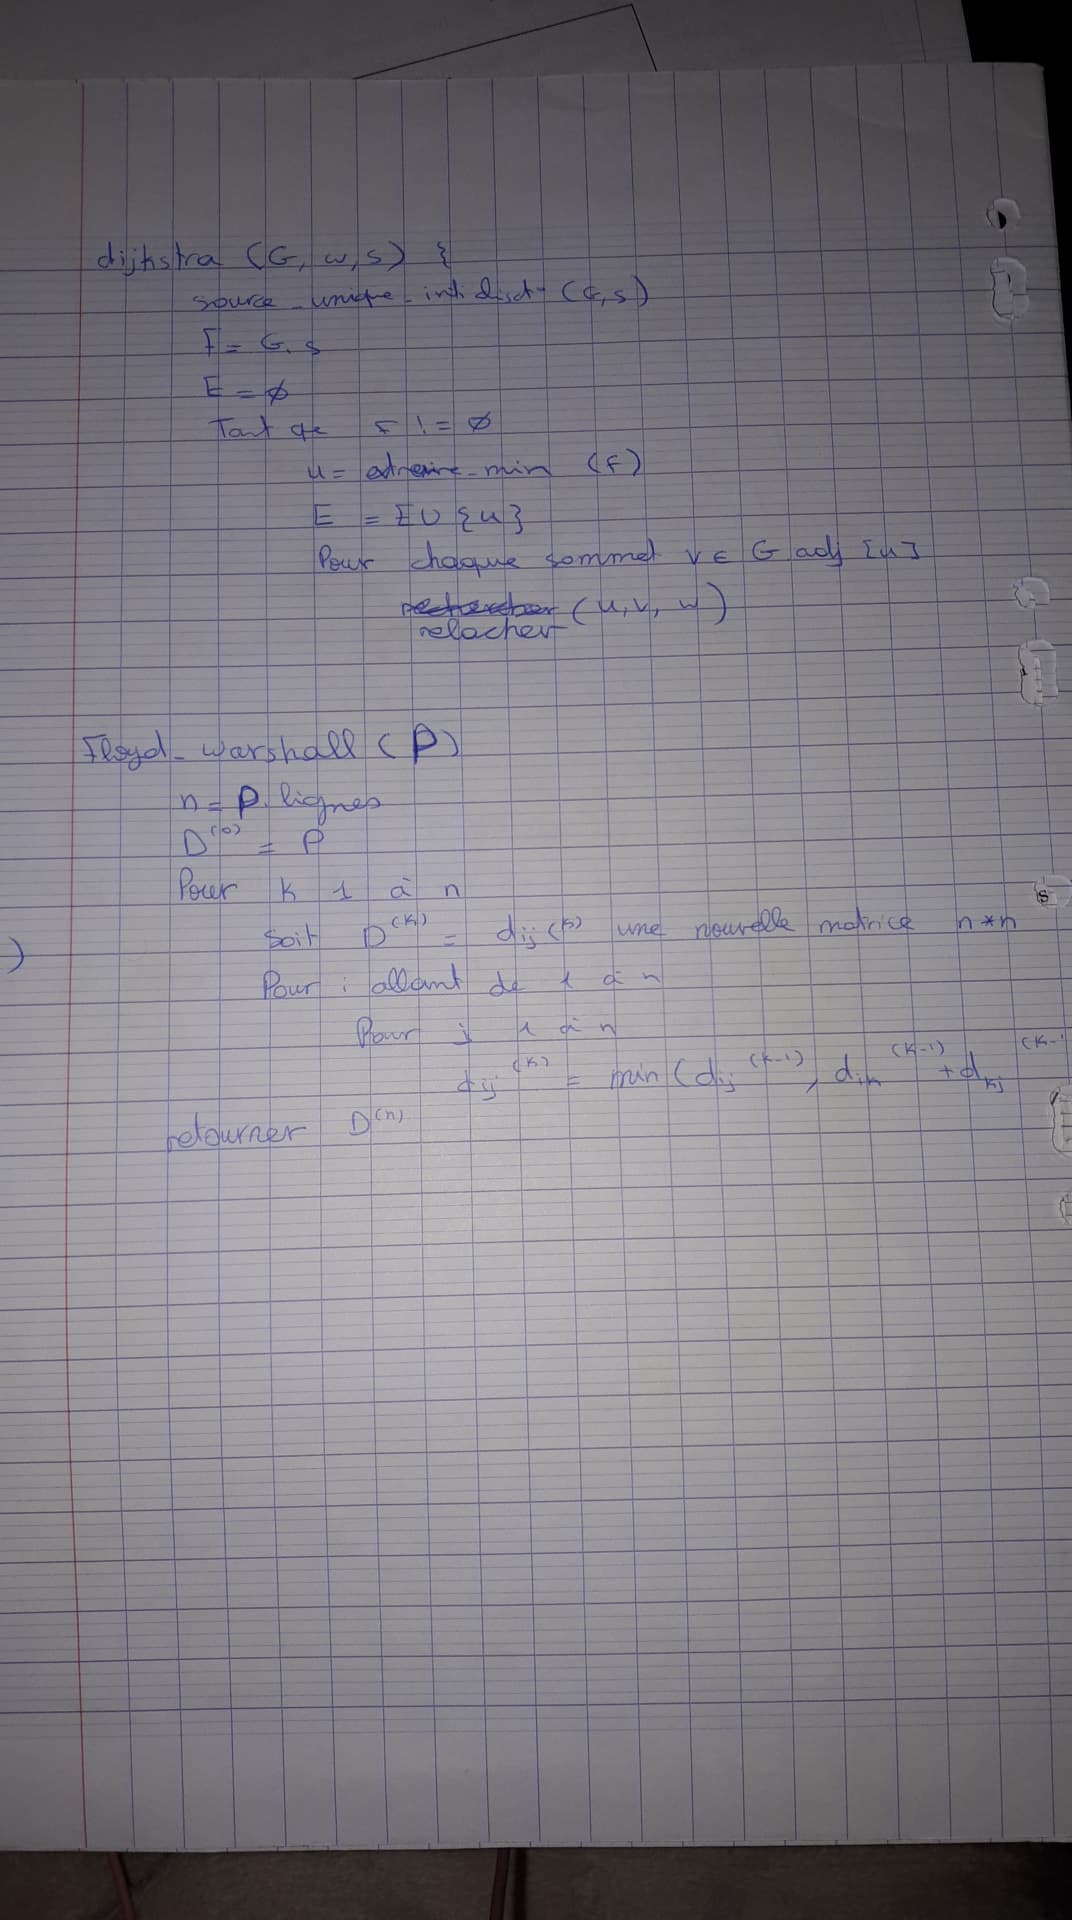 dijkstra (G, w, s) {
source_unique_initidist (G, s)
F = G.s
E = ∅
Tant que F != ∅
u = extraire_min (F)
E = E U {u}
Pour chaque sommet v ∈ G adj [u]
relacher (u, v, w)
Floyd_warshall (P)
n = P. lignes
D^(0) = P
Pour k 1 à n
Soit D^(k) = dij^(k) une nouvelle matrice n*n
)
Pour i allant de 1 à n
Pour j 1 à n
dij^(k) = min (dij^(k-1), dik^(k-1) + dkj^(k-1
retourner D^(n)